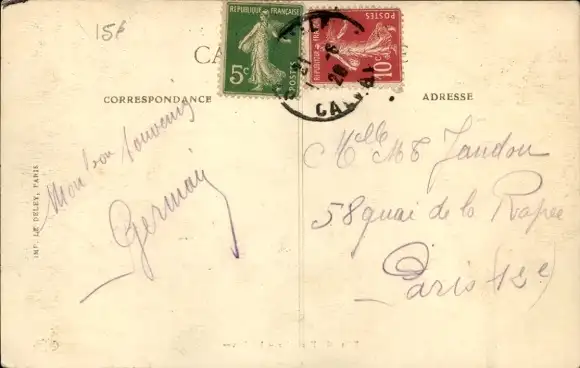 15f
CA
RÉPUBLIQUE FRANÇAISE
5c
POSTES
POSTES
10c
CALV
CORRESPONDANCE
ADRESSE
Mon bon souvenir
Germain
Melle MT Jandon
58 quai de la Rapée
Paris (12e)
IMP. LE DELEY, PARIS